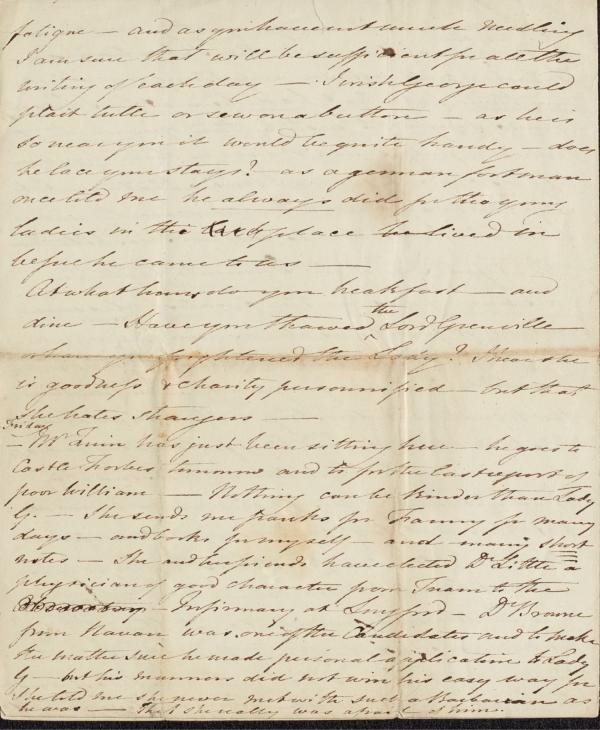 fatigue — and as you havent much needling
I am sure that will be sufficient for all the
writing of each day — I wish George could
plait tulle or sew on a button — as he is
so near you it would be quite handy — does
he lace your stays? as a german footman
once told me he always did for the young
ladies in the place he lived in
before he came to us —
At what hours do you breakfast — and
dine — Have you thawed the Lord Grenville
or have you frightened the Lady? I hear she
is goodness & charity personnified — but that
she hates strangers —
Friday
— Mr Tuin has just been sitting here — he goes to
Castle Forbes tomorrow and to for the last report of
poor William — Nothing can be kinder than Lady
G. — She sends me franks for Franny for many
days — and books for myself — and many short
notes — She and her friends have elected Dr Little a
physician of good character from Tuam to the
Infirmary at Longford — Dr Browne
from Navan was one of the Candidates and to make
the matter sure he made personal application to Lady
G — but his manners did not win his easy way for
she told me she never met with such a Barbarian as
he was — that she really was afraid of him